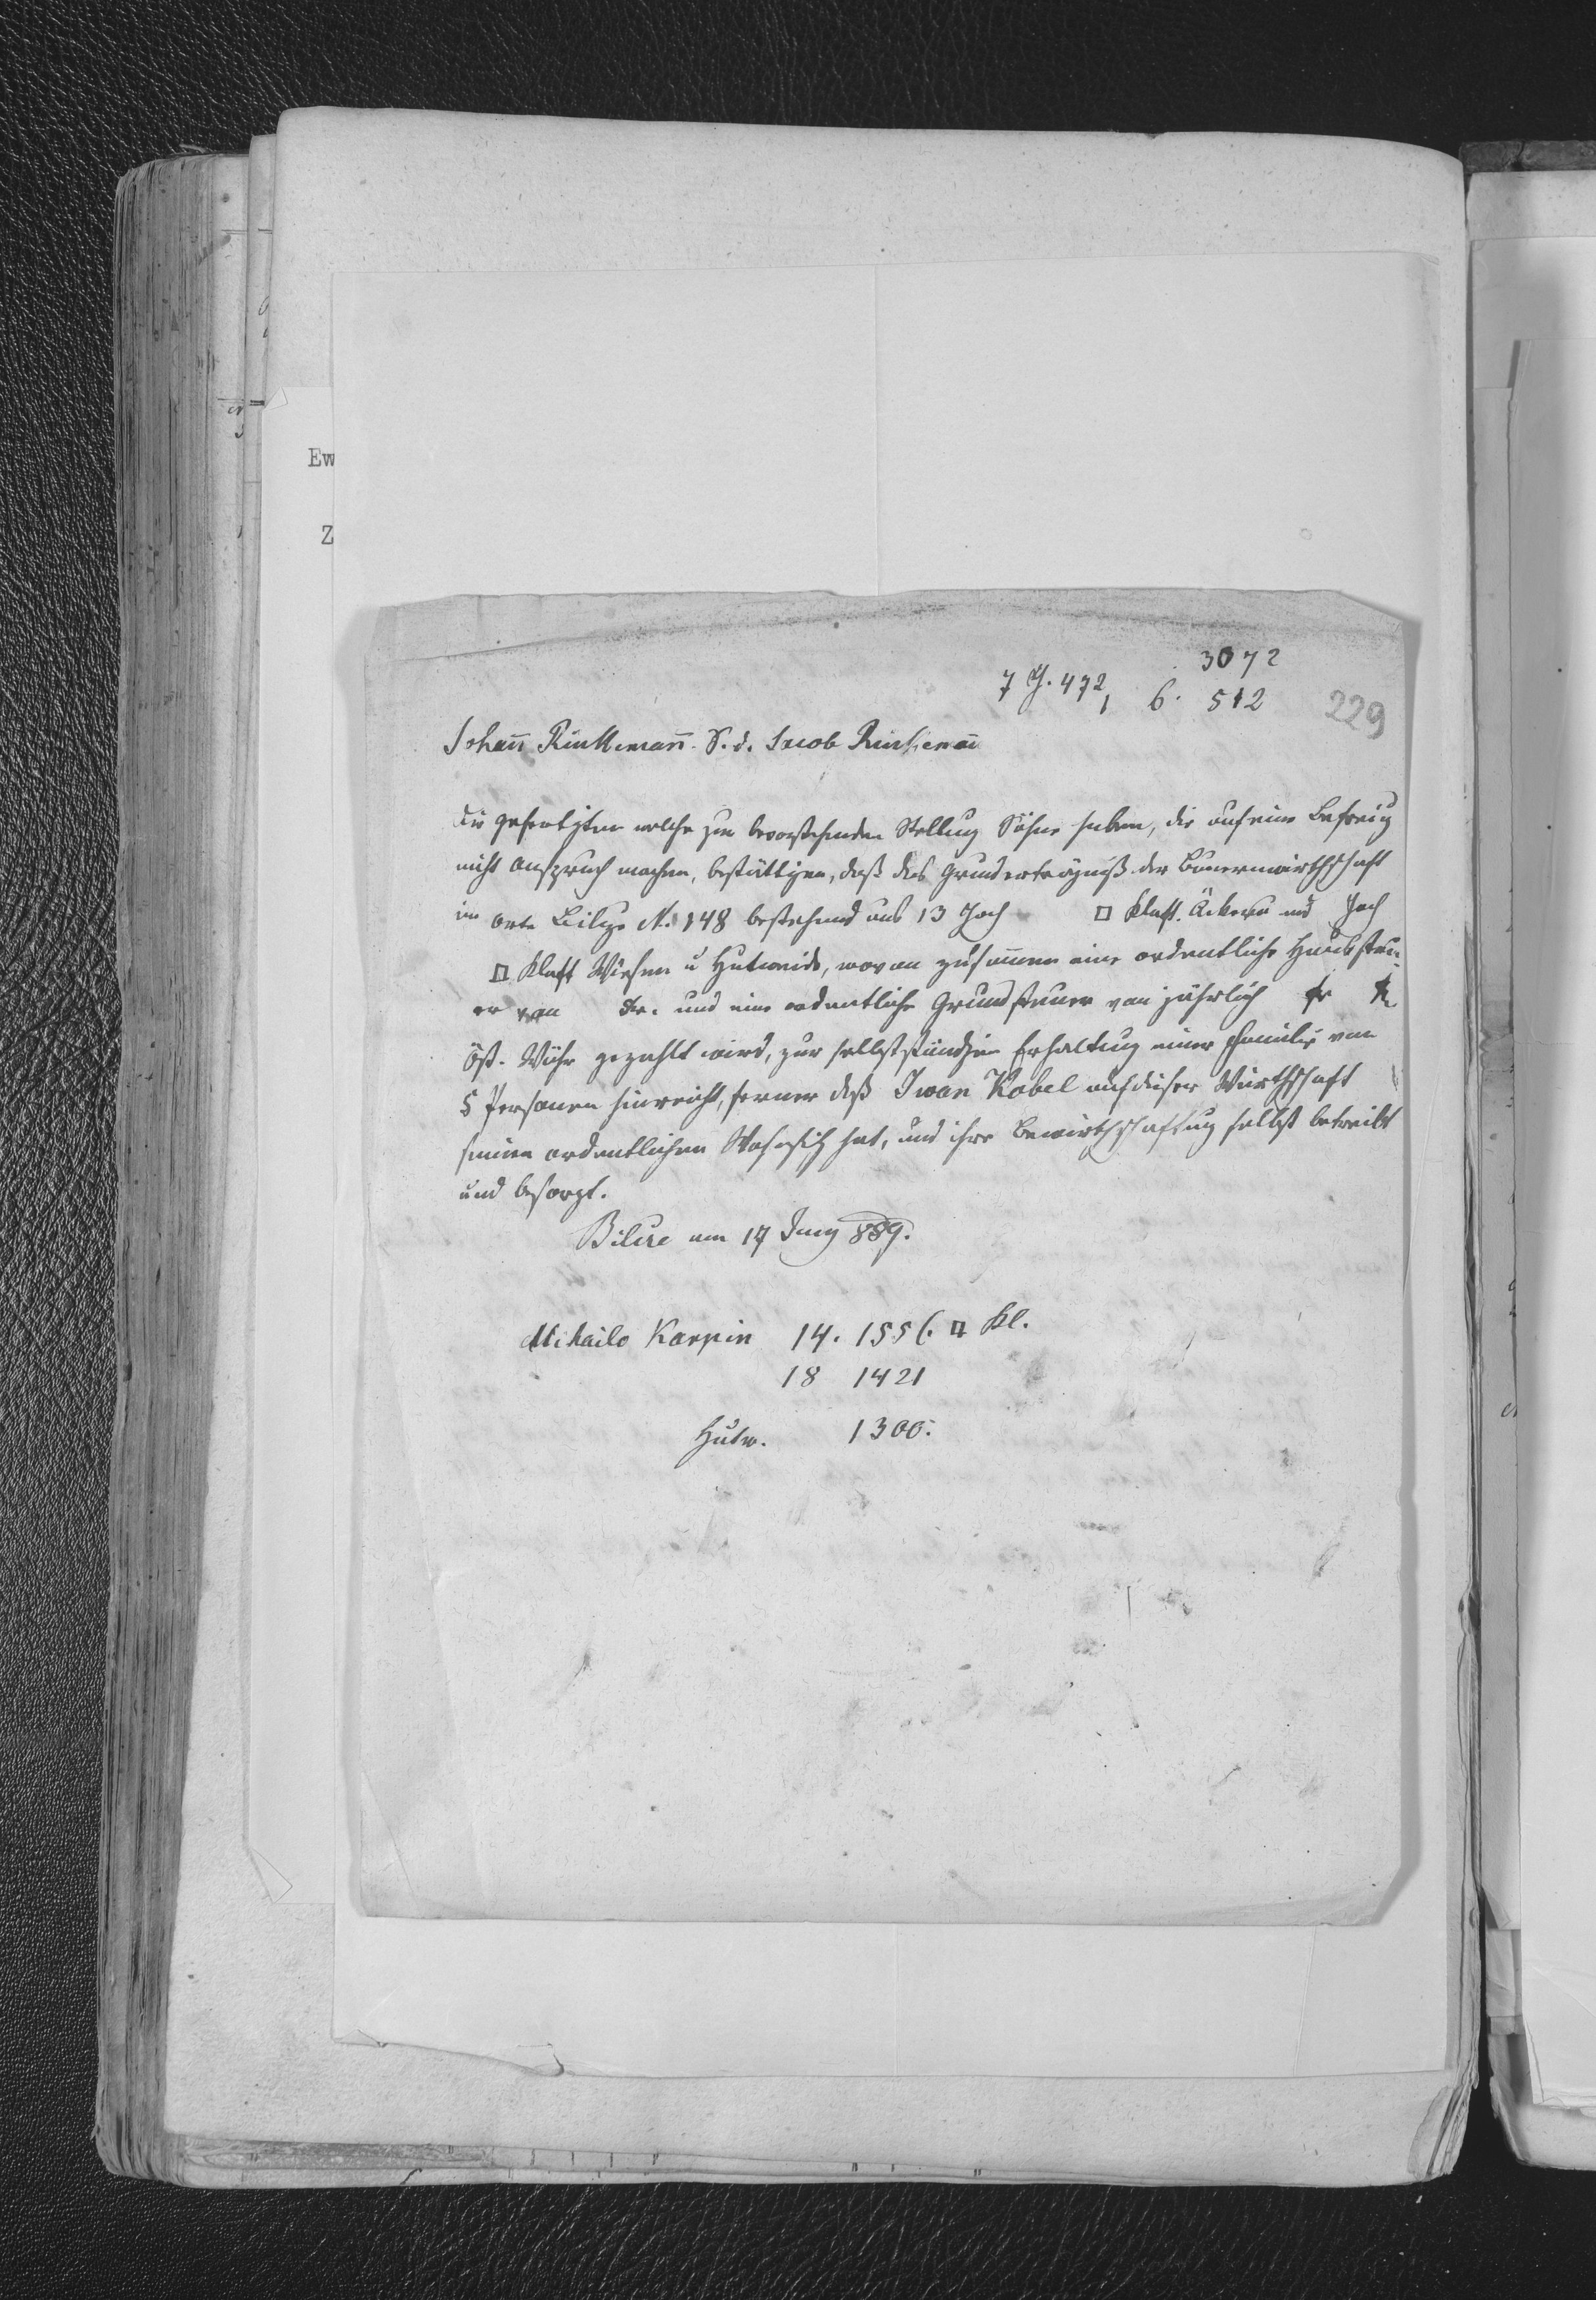 Ew
Z
3072
7 J. 472, 6. 512
229
Johan̄ Rinkleman̄. S. d. Jacob
Die gefertigten welche zur bevorstehenden Stellung Söhne haben, die auf eine Befreiung
nicht Anspruch machen, bestättigen, daß das Grunderträgniß der Bauernwirthschaft
im Orte Bilize N. 148 bestehend aus 13 Joch □ Klaft. Äckern und Joch
□ Klaft Wiesen u Hutweide, wovon zusammen eine ordentliche Haussteu-
er von kr. und eine ordentliche Grundsteuer von jährlich fr k
Öst. Währ gezahlt wird, zur selbstständigen Erhaltung einer Familie von
5 Personen hinreicht, ferner daß Iwan Kobel auf dieser Wirthschaft
seinen ordentlichen Wohnsitz hat, und ihre Bewirthschaftung selbst betreibt
und besorgt.
am 17 Juny 889.
Mihailo Karpin 14. 1556. □ Kl.
18 1421
Hutw. 1300.